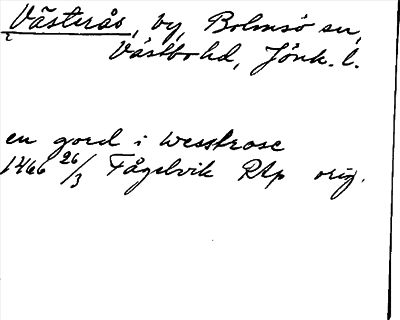 Västerås, by, Bolmsö sn,
Västbo hd, Jönk. l.
en gord i Wesstrose
1466 26/3 Fågelvik Rtp orig.